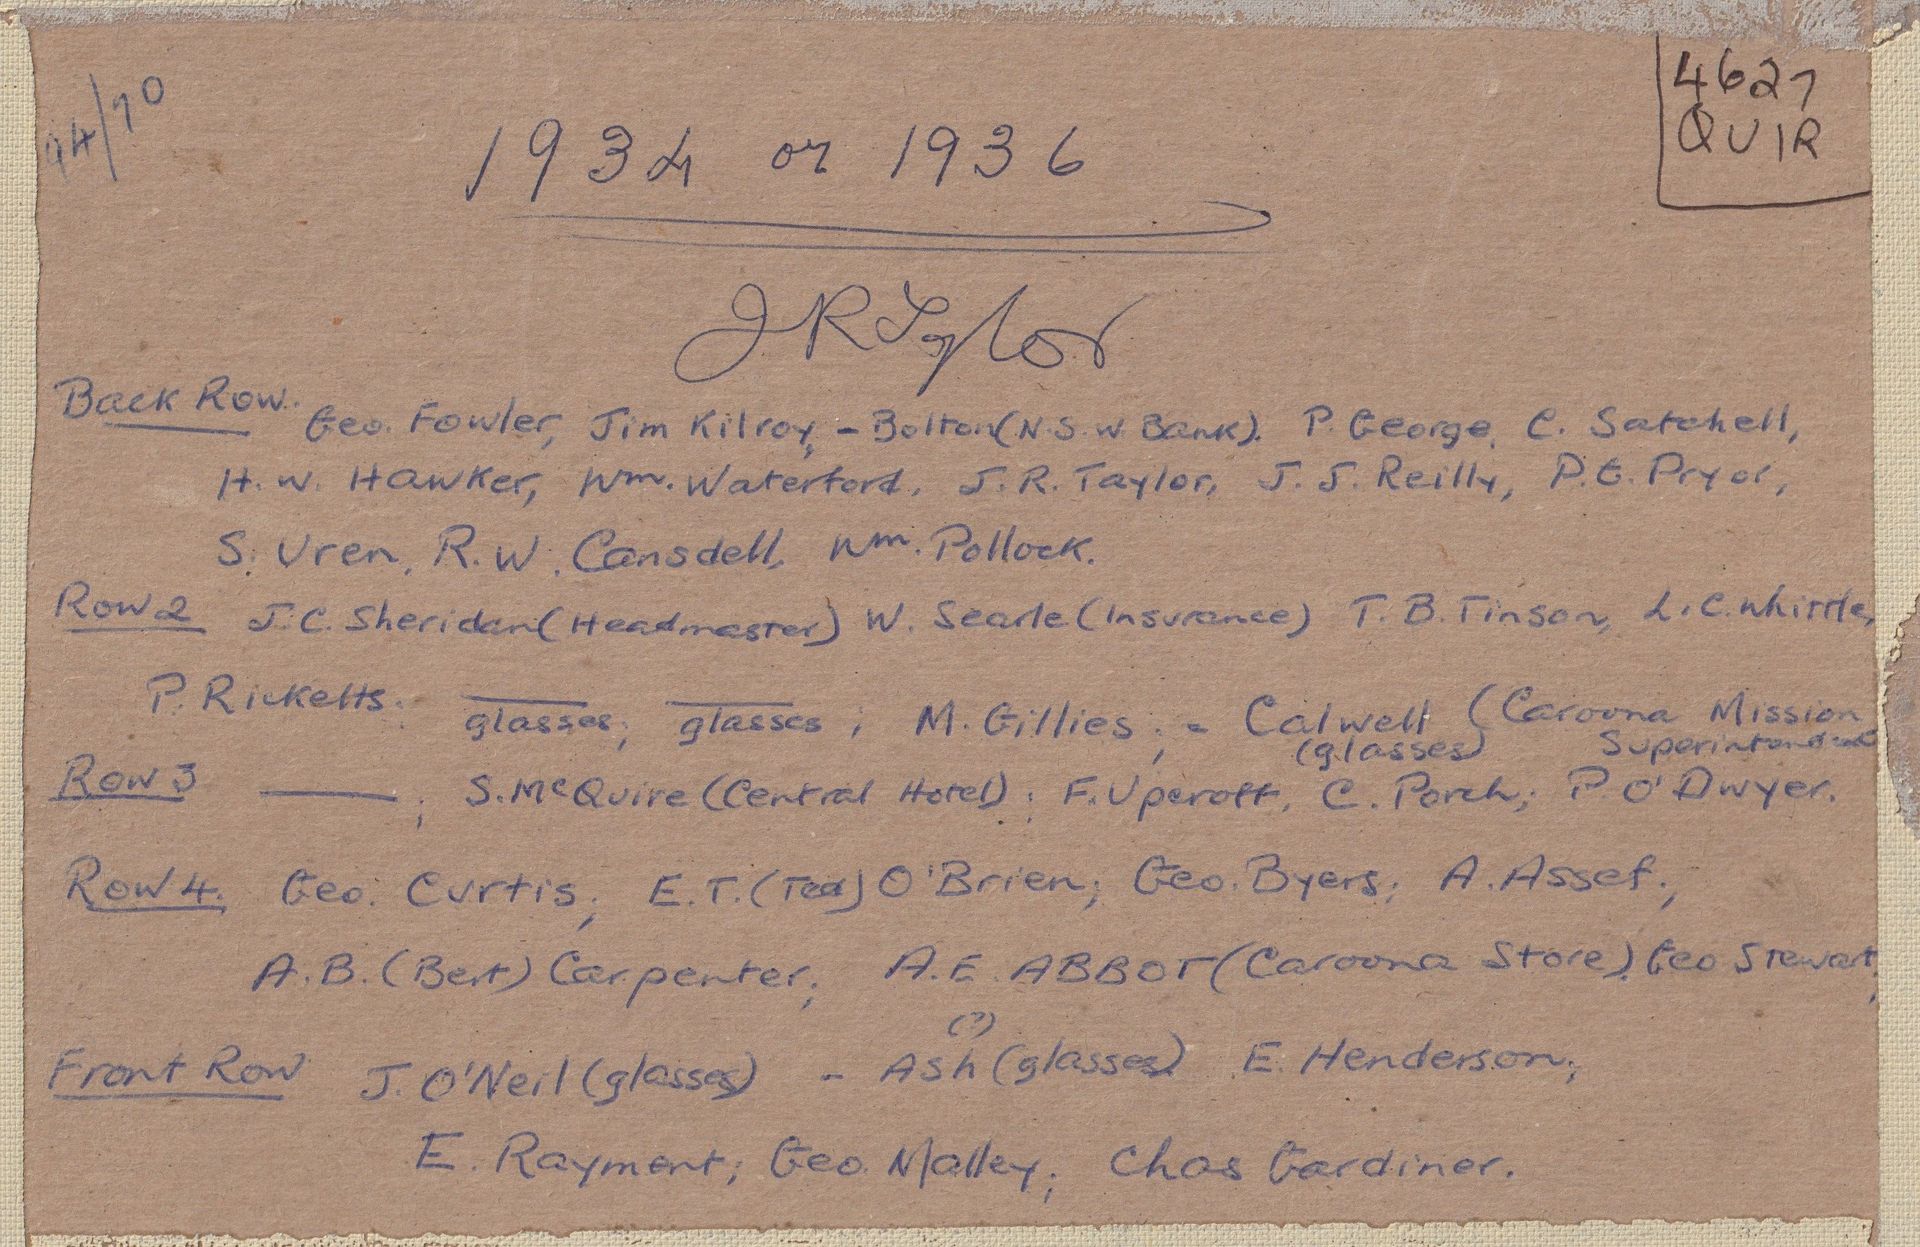 94/70
4627
QUIR
1934 or 1936
J R Taylor
Back Row. Geo. Fowler, Jim Kilroy, - Bolton (N.S.W. Bank). P. George, C. Satchell,
H. W. Hawker, Wm. Waterford, J. R. Taylor, J. J. Reilly, P. G. Pryor,
S. Uren, R. W. Cansdell, Wm. Pollock.
Row 2 J. C. Sheridan (Headmaster) W. Searle (Insurance) T. B. Tinson, L. C. Whittle,
P. Ricketts. glasses; glasses; M. Gillies; - Calwell (Caroona Mission
(glasses) Superintendent
Row 3 ——; S. McQuire (Central Hotel); F. Upcroft, C. Porch; P. O'Dwyer.
Row 4. Geo. Curtis; E. T. (Ted) O'Brien; Geo. Byers; A. Assef;
A. B. (Bert) Carpenter; A. E. ABBOT (Caroona Store). Geo Stewart;
(?)
Front Row J. O'Neil (glasses) - Ash (glasses) E. Henderson;
E. Rayment; Geo. Malley; Chas Gardiner.